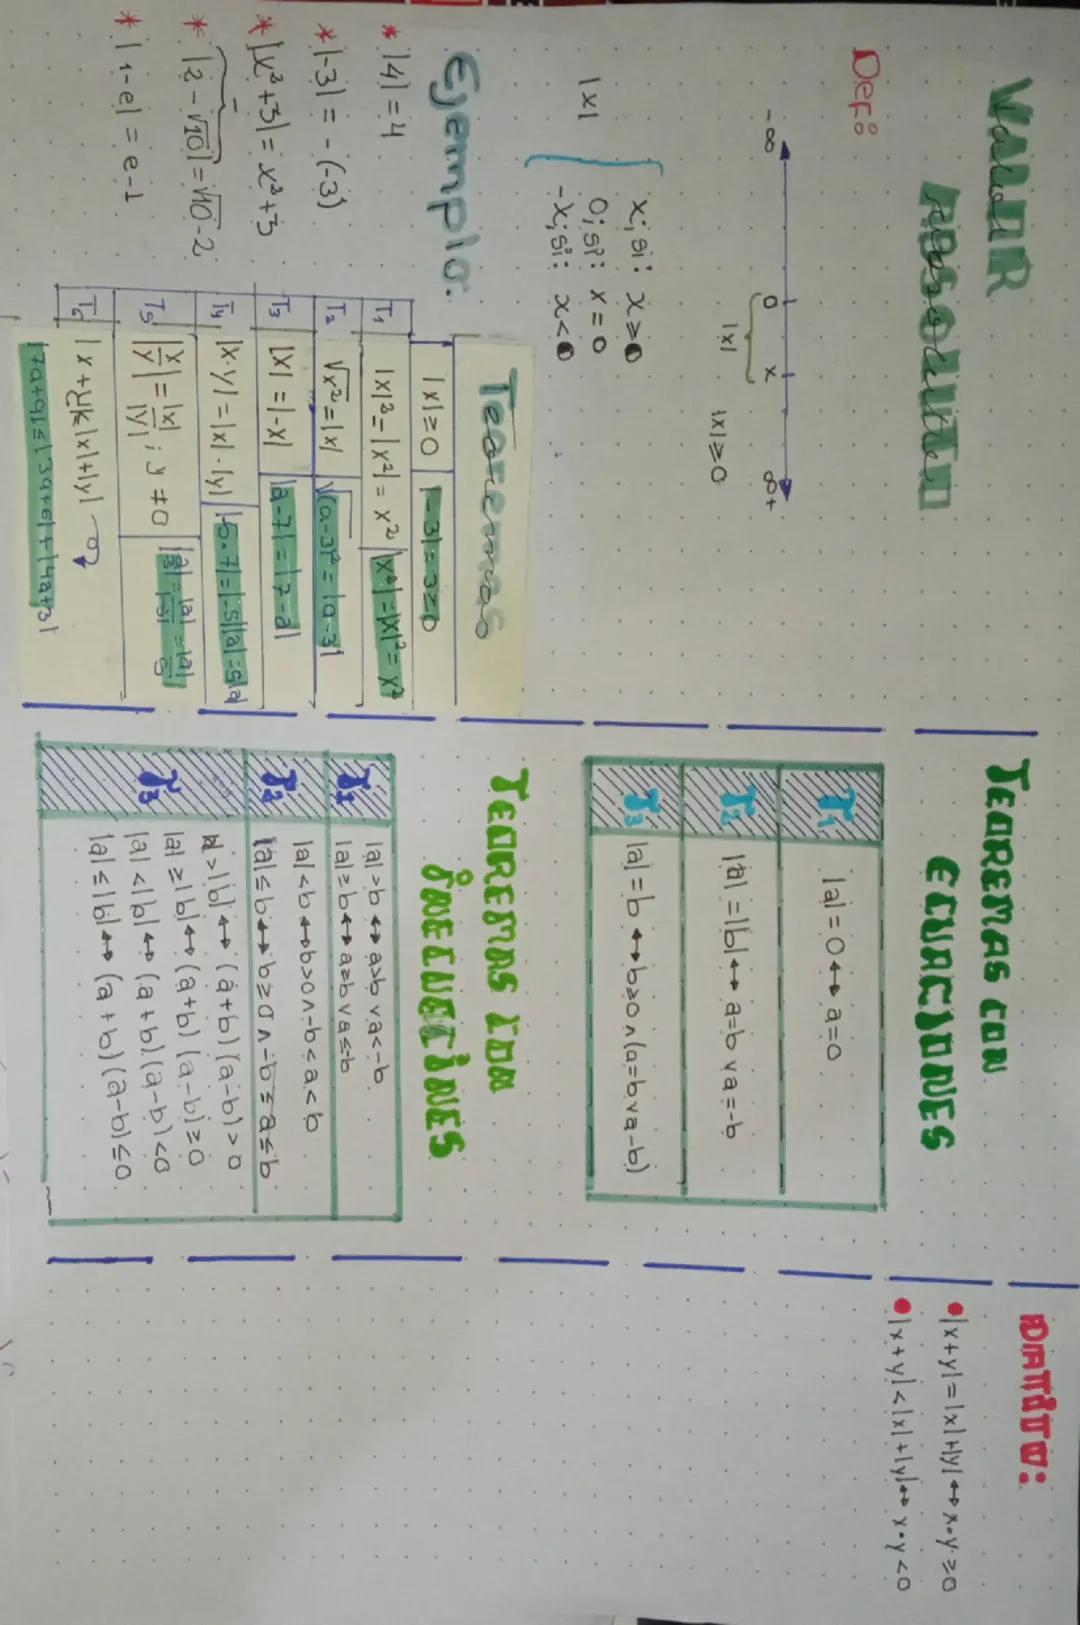 VALOR
ABSOLUTO
Def:
-∞ 0 x ∞+
|x|
|x|≥0
|x|
x; si: x>0
0; si: x=0
-x; si: x<0
Ejemplo:
* |4| = 4
* |-3| = -(-3)
* |x²+3| = x²+3
* |2-√10| = √10-2
* |1-e| = e-1
Teoremas
|x|≥0 |-3|=3≥0
T₁ |x|²=|x²|=x² |x²|=|x|²=x²
T₂ √x²=|x| √(a-3)²=|a-3|
T₃ |x|=|-x| |a-7|=|7-a|
T₄ |x·y|=|x|·|y|
T₅ |x/y|=|x|/|y|; y≠0
T₆
|7a+9|≤|3a+6|+|4a+3|
TEOREMAS CON
ECUACIONES
T₁ |a|=0↔a=0
T₂ |a|=|b|↔a=b v a=-b
T₃ |a|=b↔b≥0∧(a=b v a-b)
TEOREMAS CON
T₁ |a|>b↔a>b v a<-b
|a|≥b↔a≥b v a≤-b
T₂ |a|<b↔b>0∧-b<a<b
|a|≤b↔b≥0∧-b≤a≤b
T₃ |a|>|b|↔(a+b)(a-b)>0
|a|≥|b|↔(a+b)(a-b)≥0
|a|<|b|↔(a+b)(a-b)<0
|a|≤|b|↔(a+b)(a-b)≤0
DATITO:
• |x+y|=|x|+|y|↔x·y≥0
• |x+y|<|x|+|y|↔x·y<0